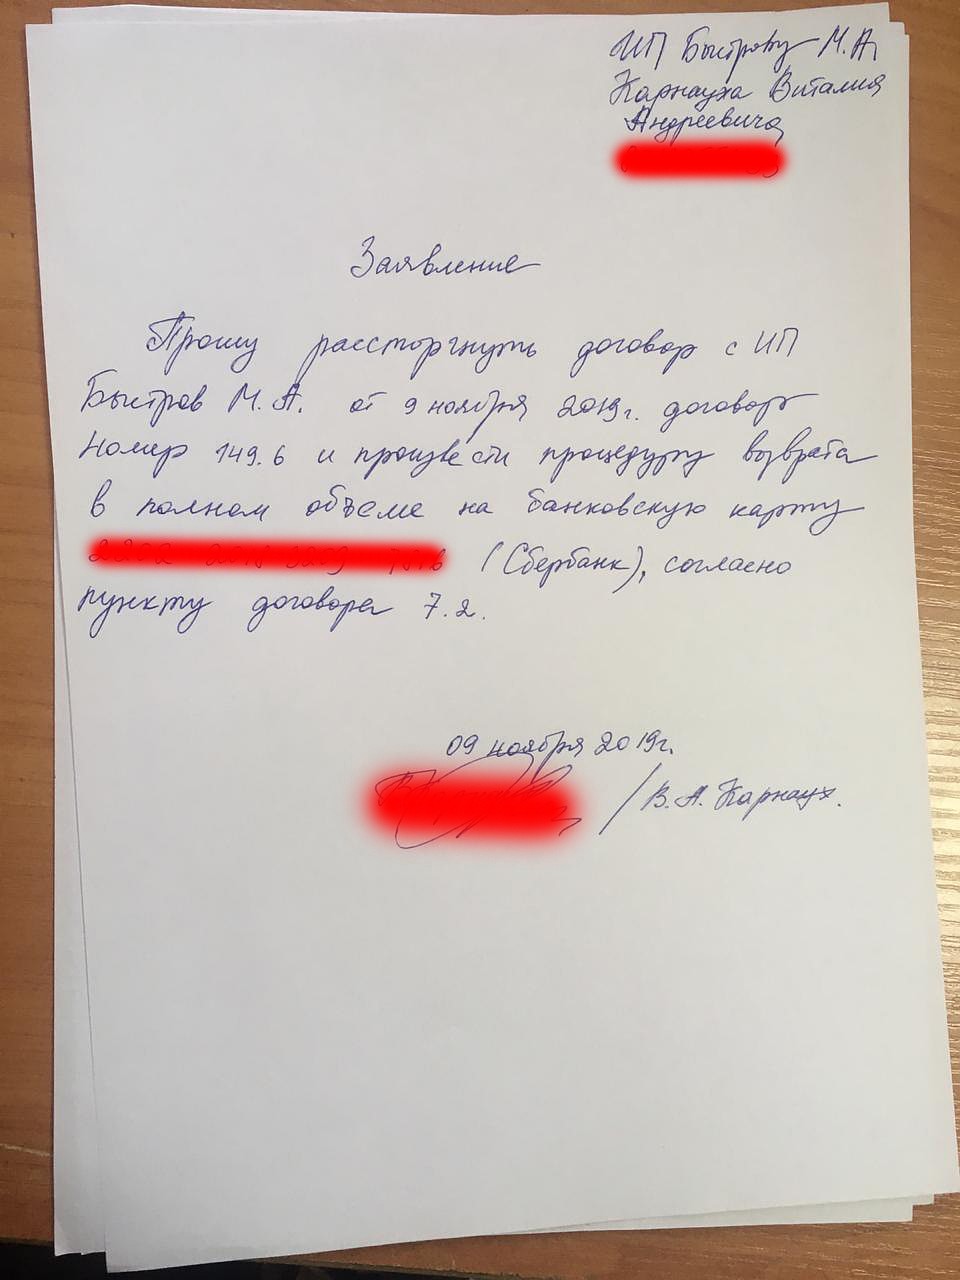 ИП Быстрову М.А
Карнауха Виталия
Андреевича
Заявление
Прошу расстoргнуть договор с ИП
Быстров М.А. от 9 ноября 2019г. договор
номер 149.6 и произвести процедуру возврата
в полном объеме на банковскую карту
(Сбербанк), согласно
пункту договора 7.2.
09 ноября 2019г.
/В.А. Карнаух.